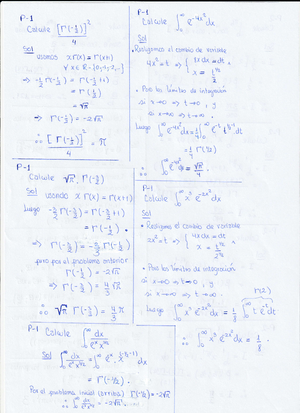 P-1
Calcule [Γ(-½)]² / 4
Sol
usamos x Γ(x) = Γ(x+1)
∀ x ∈ R - {0,-1,-2,...}
⇒ -½ Γ(-½) = Γ(-½+1)
= Γ(½)
= √π
⇒ Γ(-½) = -2√π
∴ [Γ(-½)]² / 4 = π
P-1
Calcule √π · Γ(-3/2)
Sol usando x Γ(x) = Γ(x+1)
Luego -3/2 Γ(-3/2) = Γ(-3/2+1)
= Γ(-½) .
⇒ Γ(-3/2) = -2/3 Γ(-½)
pero por el problema anterior
Γ(-½) = -2√π
⇒ Γ(-3/2) = 4/3 √π
∴ √π Γ(-3/2) = 4/3 π
P-1 Calcule ∫₀^∞ dx
Sol
= Γ(-½) .
Por el problema inicial (arriva) Γ(-½) = -2√π
P-1
Calcule ∫₀^∞ e^(-4x²) dx
Sol
• Realizamos el cambio de variable
• Para los límites de integración
si x→0 ⇒ t→0 , y
si x→∞ ⇒ t→∞ .
Luego
= ¼ Γ(½)
∴ ∫₀^∞ e^(-4x²) dx = √π / 4 .
P-1
Calcule ∫₀^∞ x³ e^(-2x²) dx
Sol
• Realizamos el cambio de variable
2x² = t ⇒ { 4x dx = dt
• Para los límites de integración
si x→0 ⇒ t→0 , y
si x→∞ ⇒ t→∞ .
Γ(2)
Luego ∫₀^∞ x³ e^(-2x²) dx = 1/8 ∫₀^∞ t e^(-t) dt
∴ ∫₀^∞ x³ e^(-2x²) dx = 1/8 .